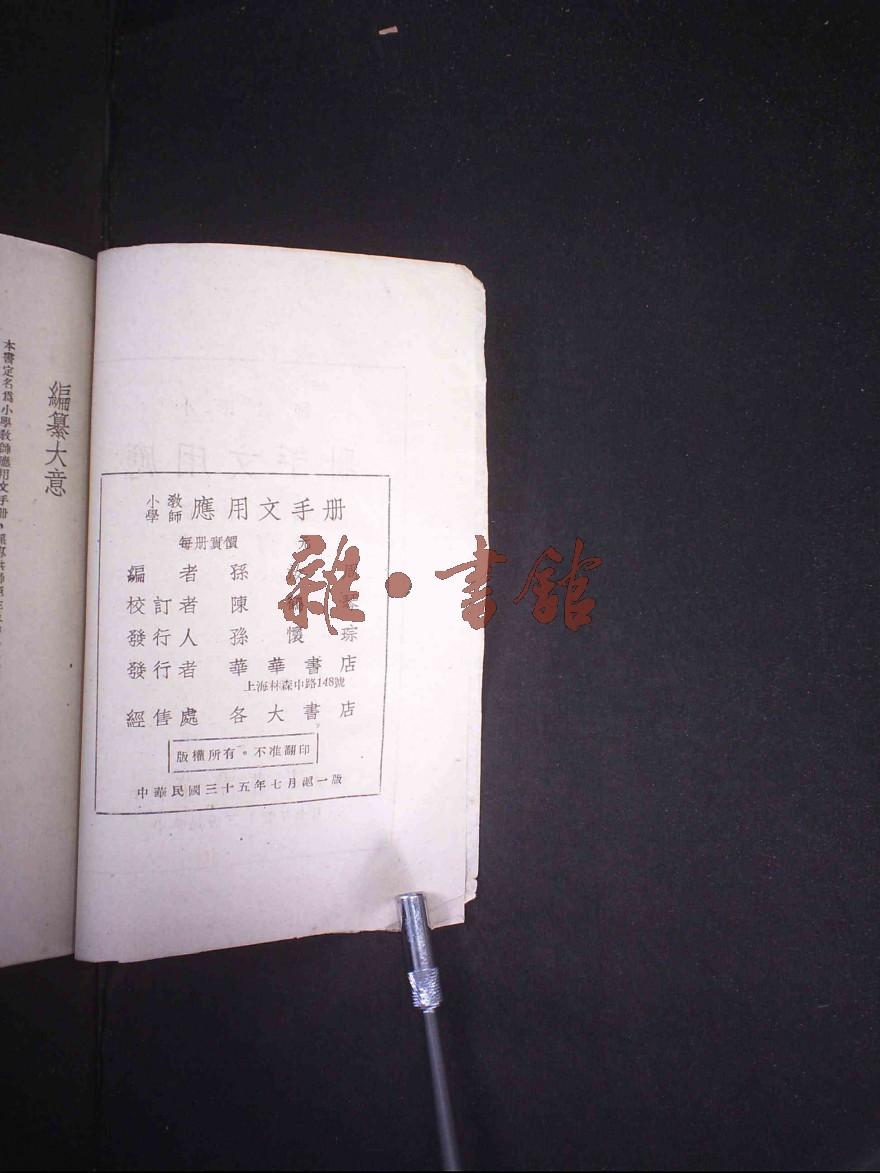 小學教師應用文手册
每册實價 元
編者 孫
校訂者 陳
發行人 孫懷琮
發行者 華華書店
上海林森中路148號
經售處 各大書店
版權所有。不准翻印
中華民國三十五年七月滬一版
編纂大意
本書定名爲小學教師應用文手册，
雜·書館